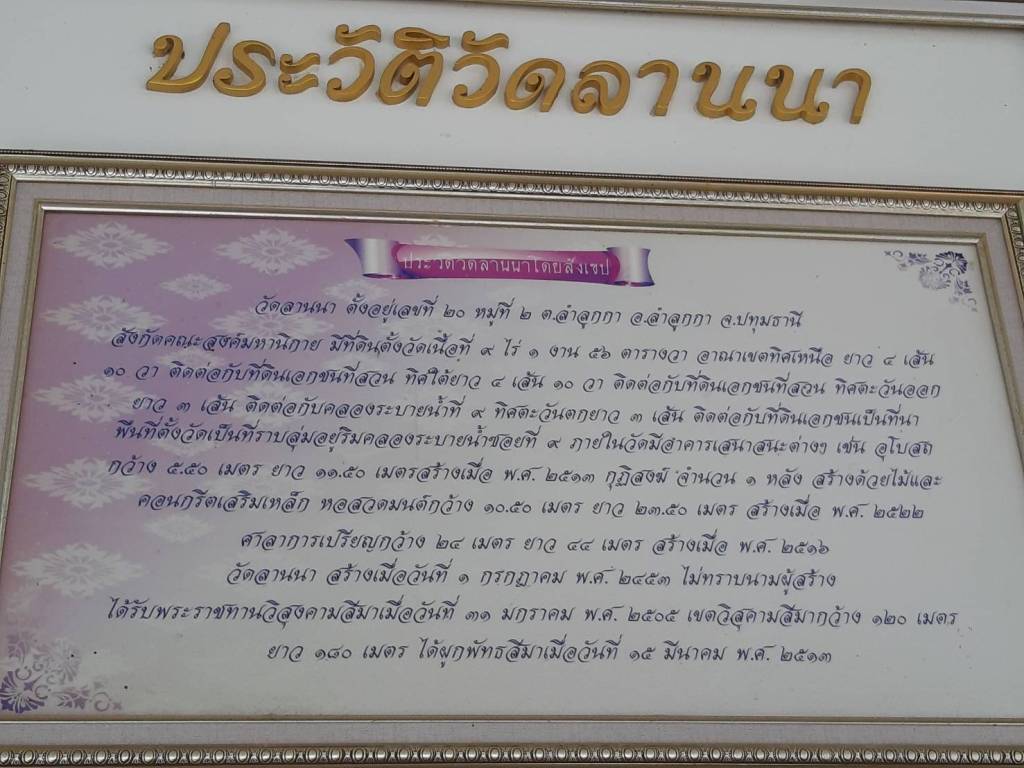 ประวัติวัดลานนา
ประวัติวัดลานนาโดยสังเขป
วัดลานนา ตั้งอยู่เลขที่ ๒๐ หมู่ที่ ๒ ต.ลำลูกกา อ.ลำลูกกา จ.ปทุมธานี
สังกัดคณะสงฆ์มหานิกาย มีที่ดินตั้งวัดเนื้อที่ ๙ ไร่ ๑ งาน ๕๖ ตารางวา อาณาเขตทิศเหนือ ยาว ๔ เส้น
๑๐ วา ติดต่อกับที่ดินเอกชนที่สวน ทิศใต้ยาว ๔ เส้น ๑๐ วา ติดต่อกับที่ดินเอกชนที่สวน ทิศตะวันออก
ยาว ๓ เส้น ติดต่อกับคลองระบายน้ำที่ ๙ ทิศตะวันตกยาว ๓ เส้น ติดต่อกับที่ดินเอกชนเป็นที่นา
พื้นที่ตั้งวัดเป็นที่ราบลุ่มอยู่ริมคลองระบายน้ำซอยที่ ๙ ภายในวัดมีอาคารเสนาสนะต่างๆ เช่น อุโบสถ
กว้าง ๕.๕๐ เมตร ยาว ๑๑.๕๐ เมตรสร้างเมื่อ พ.ศ. ๒๕๑๓ กุฏิสงฆ์ จำนวน ๑ หลัง สร้างด้วยไม้และ
คอนกรีตเสริมเหล็ก หอสวดมนต์กว้าง ๑๐.๕๐ เมตร ยาว ๒๓.๕๐ เมตร สร้างเมื่อ พ.ศ. ๒๕๒๒
ศาลาการเปรียญกว้าง ๒๔ เมตร ยาว ๔๔ เมตร สร้างเมื่อ พ.ศ. ๒๕๑๖
วัดลานนา สร้างเมื่อวันที่ ๑ กรกฎาคม พ.ศ. ๒๔๕๓ ไม่ทราบนามผู้สร้าง
ได้รับพระราชทานวิสุงคามสีมาเมื่อวันที่ ๓๑ มกราคม พ.ศ. ๒๕๐๕ เขตวิสุคามสีมากว้าง ๑๒๐ เมตร
ยาว ๑๘๐ เมตร ได้ผูกพัทธสีมาเมื่อวันที่ ๑๕ มีนาคม พ.ศ. ๒๕๑๓